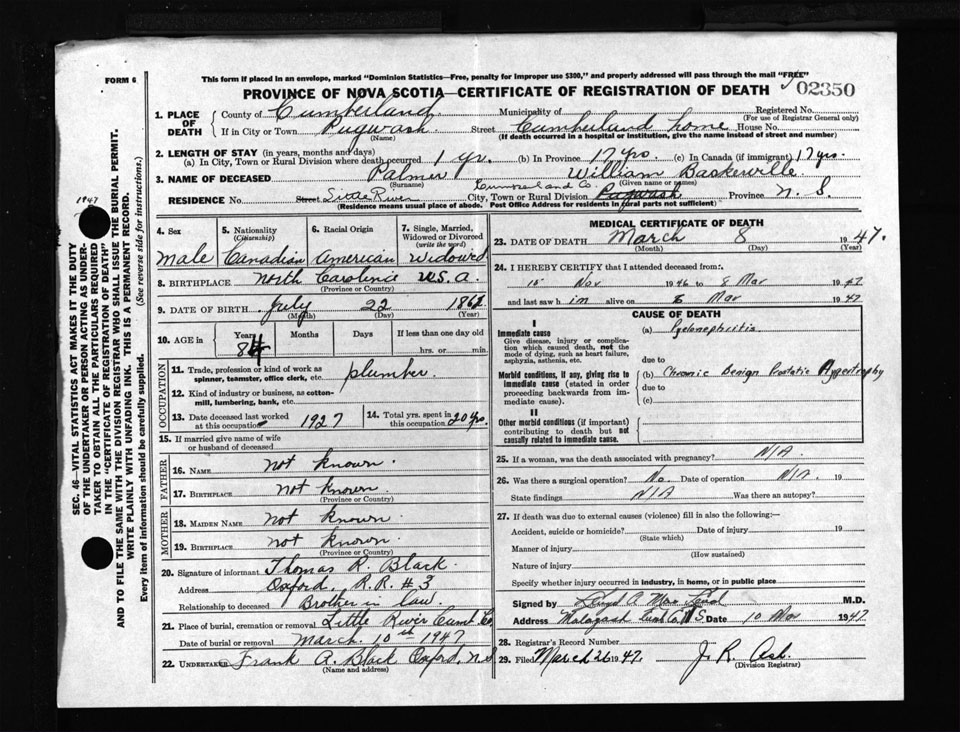 FORM 6
This form if placed in an envelope, marked "Dominion Statistics—Free, penalty for improper use $300," and properly addressed will pass through the mail "FREE"
PROVINCE OF NOVA SCOTIA—CERTIFICATE OF REGISTRATION OF DEATH
02350
1. PLACE OF DEATH County of Cumberland Municipality of Registered No. (For use of Registrar General only)
If in City or Town Pugwash Street Cumberland Home House No.
(Name) (If death occurred in a hospital or institution, give the name instead of street and number)
2. LENGTH OF STAY (in years, months and days)
(a) In City, Town or Rural Division where death occurred 1 yr. (b) In Province 17 yrs. (c) In Canada (if immigrant) 17 yrs.
3. NAME OF DECEASED Palmer William Baskerville
(Surname) (Given name or names)
RESIDENCE No. Street River Cumberland Co. City, Town or Rural Division Pugwash Province N. S.
(Residence means usual place of abode. Post Office Address for residents in rural parts not sufficient)
1947
SEC. 46—VITAL STATISTICS ACT MAKES IT THE DUTY
OF THE UNDERTAKER OR PERSON ACTING AS UNDER-
TAKER TO OBTAIN ALL THE PARTICULARS REQUIRED
IN THE "CERTIFICATE OF REGISTRATION OF DEATH"
AND TO FILE THE SAME WITH THE DIVISION REGISTRAR WHO SHALL ISSUE THE BURIAL PERMIT.
WRITE PLAINLY WITH UNFADING INK. THIS IS A PERMANENT RECORD.
Every item of information should be carefully supplied. (See reverse side for instructions.)
4. Sex 5. Nationality (Citizenship) 6. Racial Origin 7. Single, Married, Widowed or Divorced (write the word)
Male Canadian American Widowed
8. BIRTHPLACE North Carolina U.S.A.
(Province or Country)
9. DATE OF BIRTH July 22 1862
(Month) (Day) (Year)
10. AGE in Years Months Days If less than one day old
84 hrs. or min.
OCCUPATION
11. Trade, profession or kind of work as spinner, teamster, office clerk, etc. plumber.
12. Kind of industry or business, as cotton-mill, lumbering, bank, etc.
13. Date deceased last worked at this occupation 1927 14. Total yrs. spent in this occupation 20 yrs.
15. If married give name of wife or husband of deceased
FATHER
16. NAME not known.
17. BIRTHPLACE not known.
(Province or Country)
MOTHER
18. MAIDEN NAME not known
19. BIRTHPLACE not known.
(Province or Country)
20. Signature of informant Thomas R. Black.
Address Oxford, R.R. #3
Relationship to deceased Brother in law.
21. Place of burial, cremation or removal Little River Cum. Co.
Date of burial or removal March 10th 1947
22. UNDERTAKER Frank A. Black Oxford, N.S.
(Name and address)
MEDICAL CERTIFICATE OF DEATH
23. DATE OF DEATH March 8 1947.
(Month) (Day) (Year)
24. I HEREBY CERTIFY that I attended deceased from:
15 Nov 1946 to 8 Mar 1947
and last saw him alive on 8 Mar 1947
CAUSE OF DEATH
I
Immediate cause (a) Pyelonephritis
Give disease, injury or complication which caused death, not the mode of dying, such as heart failure, asphyxia, asthenia, etc.
due to
Morbid conditions, if any, giving rise to immediate cause (stated in order proceeding backwards from immediate cause). (b) Chronic Benign Prostatic Hypertrophy
due to
(c)
II
Other morbid conditions (if important) contributing to death but not causally related to immediate cause.
25. If a woman, was the death associated with pregnancy? N/A.
26. Was there a surgical operation? No. Date of operation N/A. 19
State findings N/A Was there an autopsy?
27. If death was due to external causes (violence) fill in also the following:—
Accident, suicide or homicide? Date of injury 19
(State which)
Manner of injury
(How sustained)
Nature of injury
Specify whether injury occurred in industry, in home, or in public place
Signed by M.D.
Address Malagash Cumb Co. N S. Date 10 Mar 1947
28. Registrar's Record Number
29. Filed March 26 1947. J. R. Ash.
(Division Registrar)